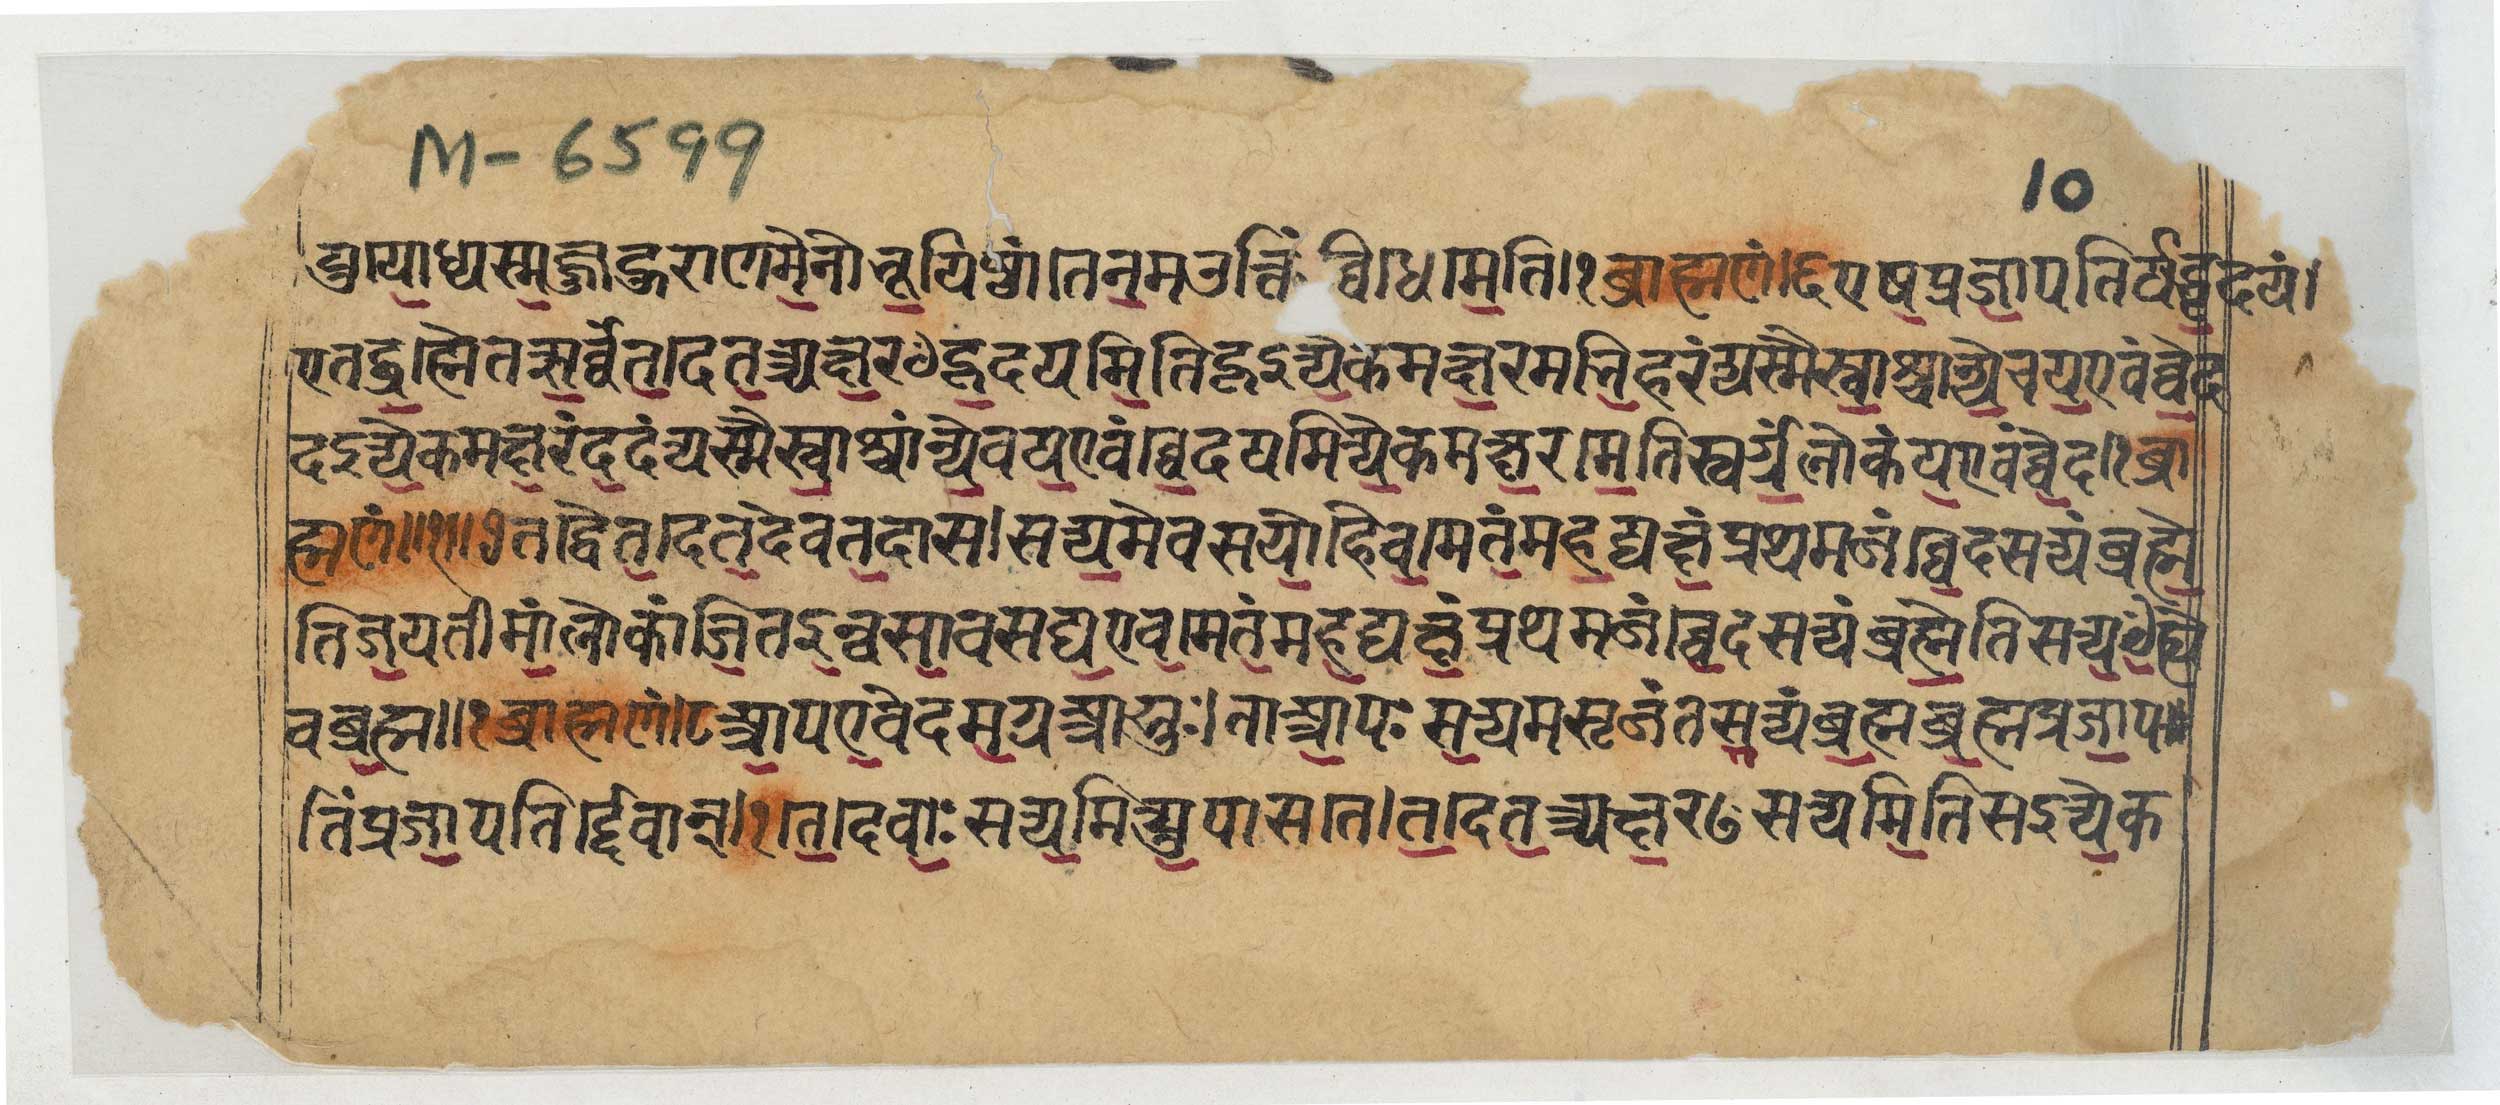 M- 6599
10
युयोध्यस्मज्जुहुराणमेनो भूयिष्ठां तेनमउक्तिं विधेमेति।१ ब्राह्मणं।६ एषप्रजापतिर्यद्धृदयं।
एतद्ब्रह्मैतत्सर्वंतदेतत्त्र्यक्षरꣳहृदयमितिहृऽइत्येकमक्षरमभिहरंत्यस्मैस्वाश्चान्येचयएवंव्वेद
दऽइत्येकमक्षरंददंत्यस्मैस्वाश्चान्येचयएवंव्वेदयमित्येकमक्षरमेतिस्वर्गंलोकंयएवंव्वेद।१ब्रा
ह्मणं॥१॥७तद्वैतदेतदेवतदास।सत्यमेवसयोहैवमेतंमहद्यक्षंप्रथमजंव्वेदसत्यंब्रह्मे
तिजयतीमांलोकांजितऽइन्वसावसद्यएवमेतंमहद्यक्षंप्रथमजंव्वेदसत्यंब्रह्मेतिसत्यꣳह्ये
वब्रह्म॥१ब्राह्मणं।८आपएवेदमग्रआसुः।ताआपःसत्यमसृजंतसत्यंब्रह्मब्रह्मप्रजाप
तिंप्रजापतिर्देवान्।१।तेदेवाःसत्यमित्युपासते।तदेतत्त्र्यक्षरꣳसत्यमितिसऽइत्येक